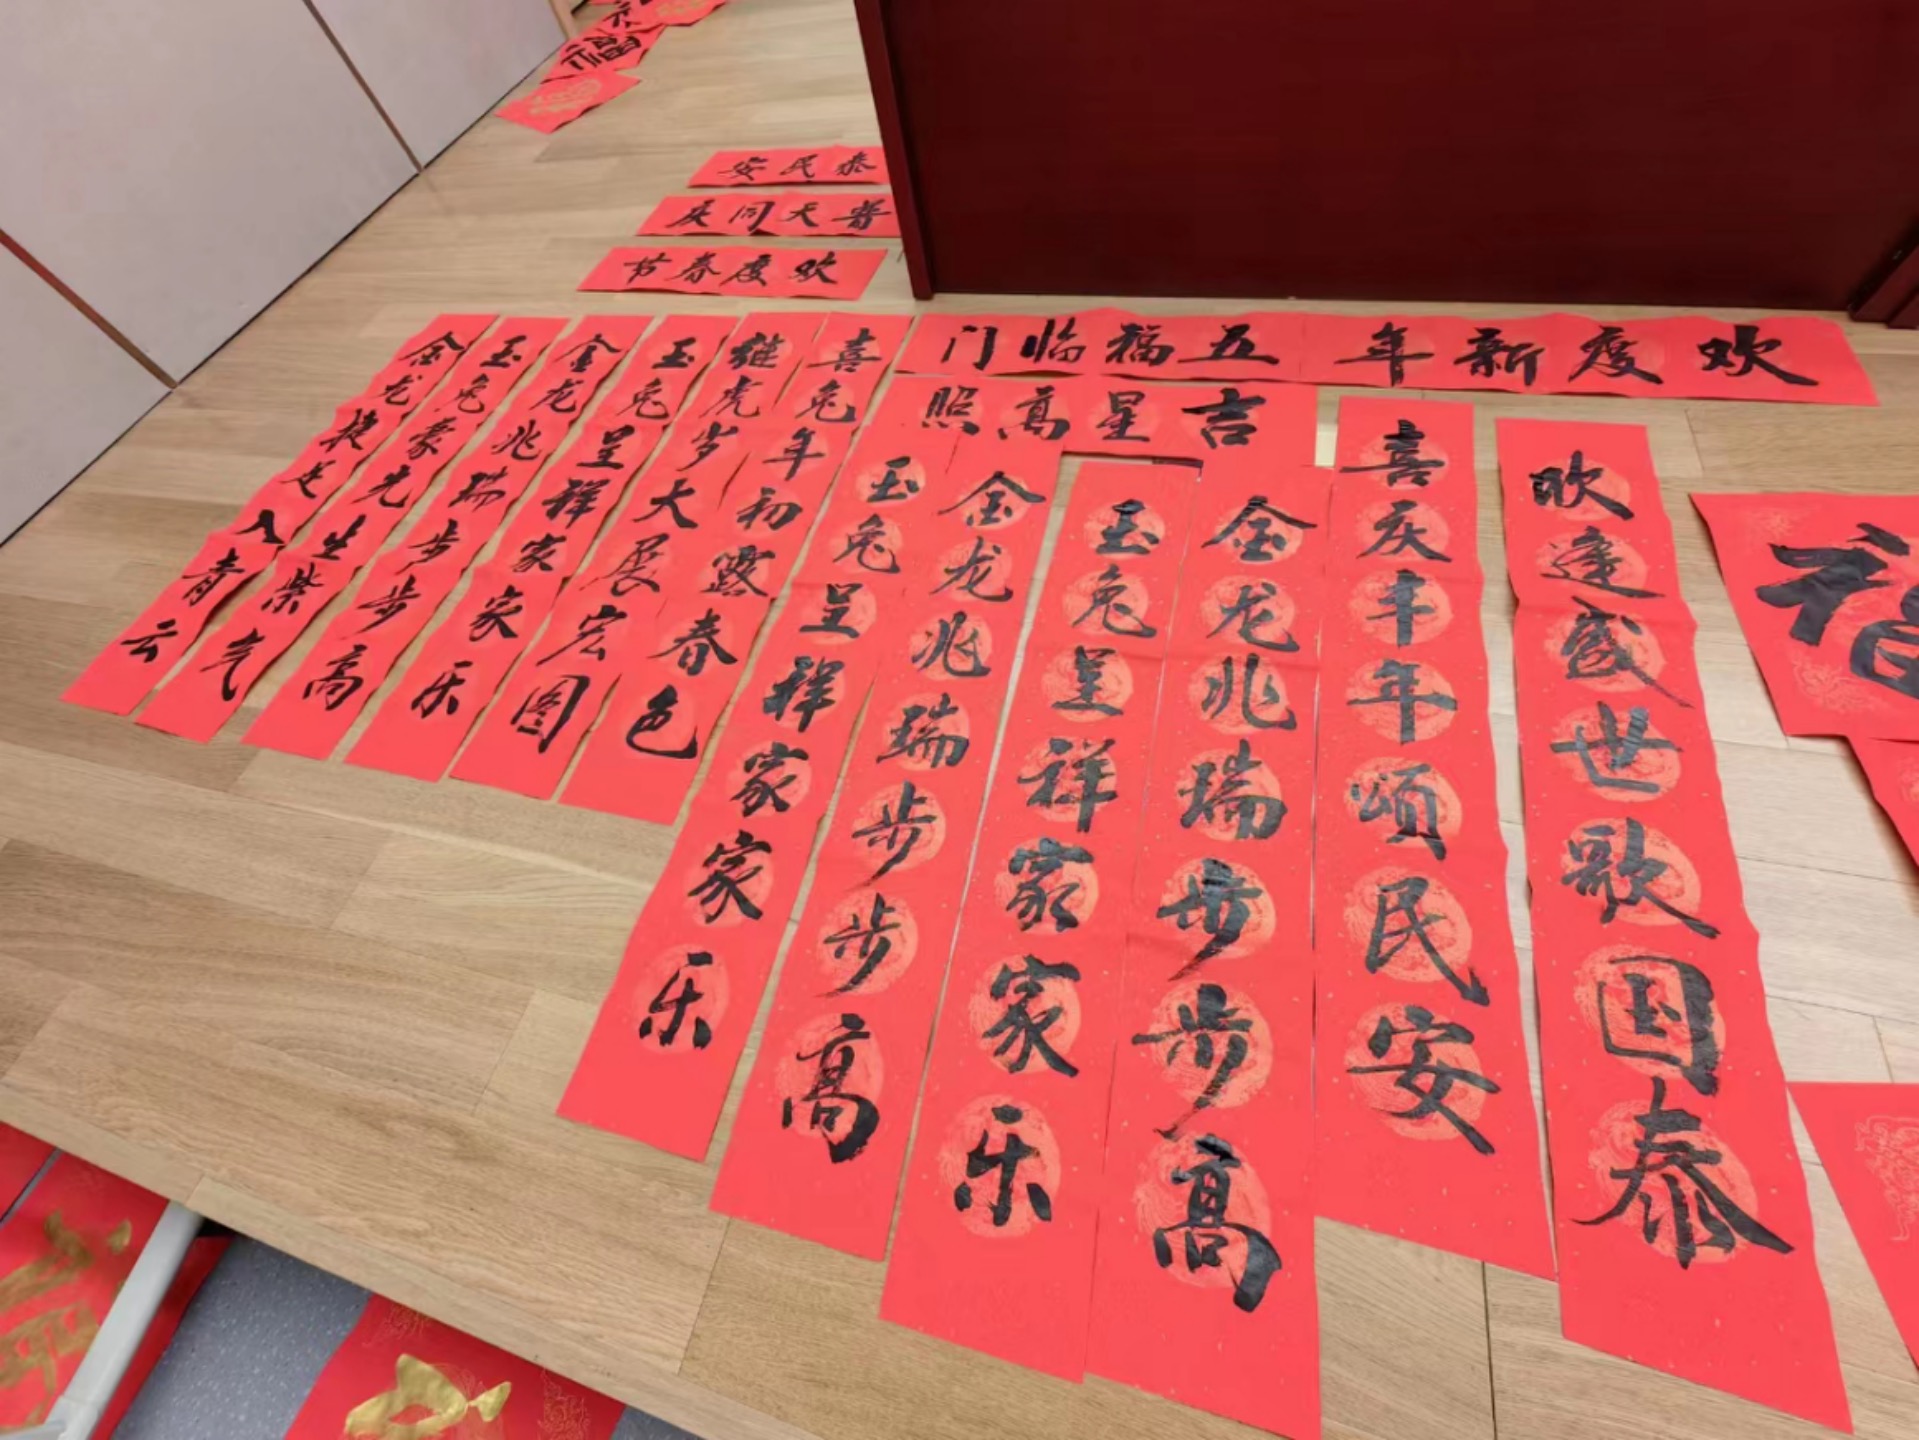 福
泰民安
普天同庆
欢度春节
欢度新年
五福临门
吉星高照
欣逢盛世歌国泰
喜庆丰年颂民安
金龙兆瑞步步高
玉兔呈祥家家乐
金龙兆瑞步步高
玉兔呈祥家家乐
喜兔年初露春色
虎岁大展宏图
玉兔呈祥家家乐
金龙兆瑞步步高
玉兔豪光生紫气
金龙捷足入青云
福